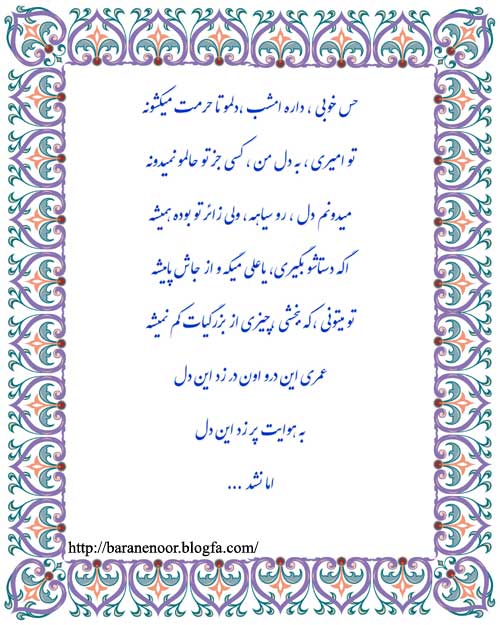 حس خوبی ، داره امشب ،دلمو تا حرمت میکشونه
تو امیری ، به دل من ، کسی جز تو حالمو نمیدونه
میدونم دل ، رو سیاهه، ولی زائر تو بوده همیشه
اگه دستاشو بگیری، یا علی میگه و از جاش پا میشه
تو میتونی ،که ببخشی ،چیزی از بزرگیات کم نمیشه
عمری این در و اون در زد این دل
به هوایت پر زد این دل
اما نشد ...
http://baranenoor.blogfa.com/